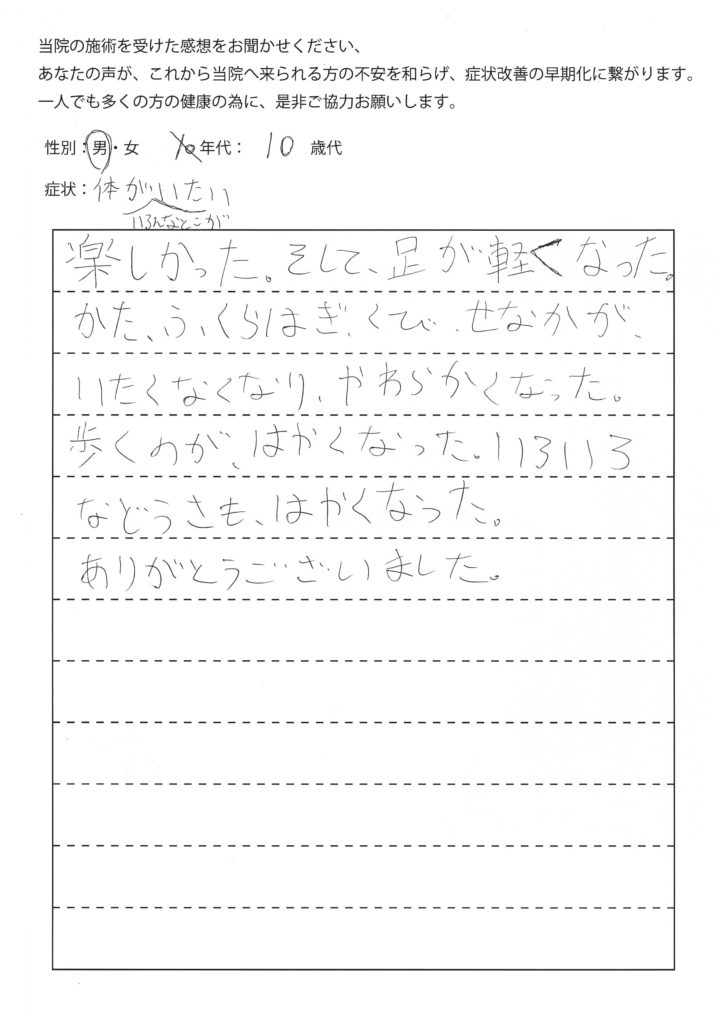 当院の施術を受けた感想をお聞かせください、
あなたの声が、これから当院へ来られる方の不安を和らげ、症状改善の早期化に繋がります。
一人でも多くの方の健康の為に、是非ご協力お願いします。
性別：男・女 年代： 10 歳代
症状：体がいたい
いろんなとこが
楽しかった。そして、足が軽くなった。
かた、ふくらはぎ、くび、せなかが、
いたくなくなり、やわらかくなった。
歩くのが、はかくなった。いろいろ
などうさも、はかくなった。
ありがとうございました。